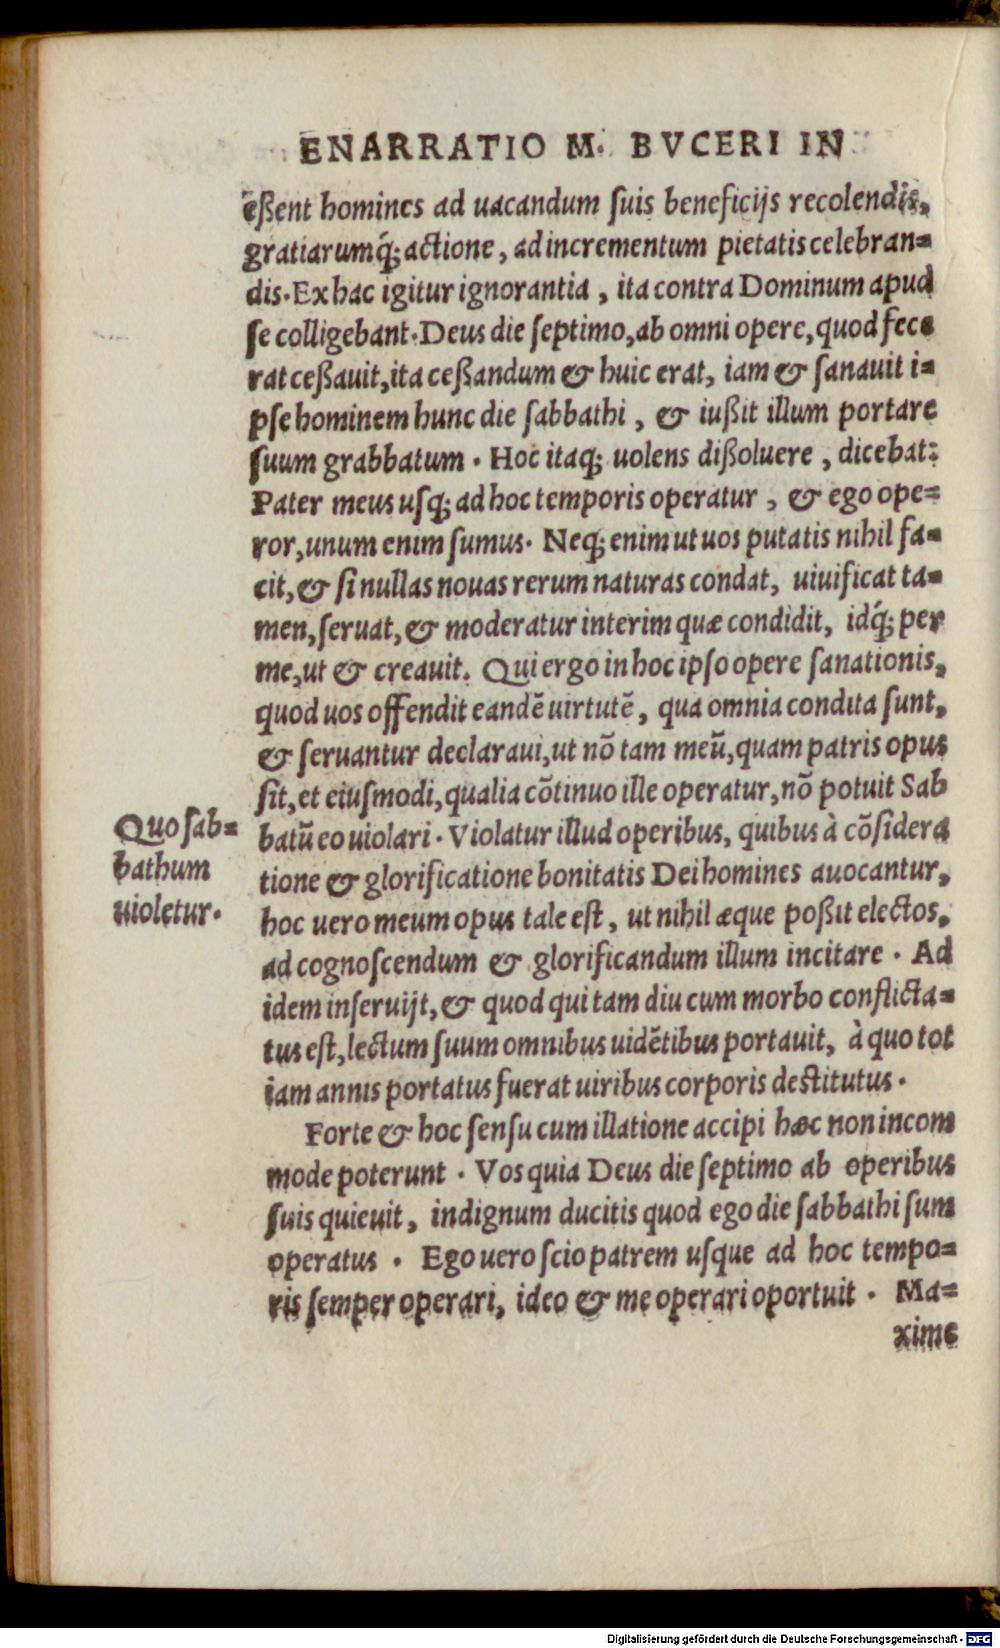 ENARRATIO M. BVCERI IN
eßent homines ad uacandum ſuis beneficijs recolendis,
gratiarumq́; actione, ad incrementum pietatis celebran=
dis. Ex hac igitur ignorantia, ita contra Dominum apud
ſe colligebant. Deus die ſeptimo, ab omni opere, quod fece
rat ceßauit, ita ceßandum & huic erat, iam & ſanauit i=
pſe hominem hunc die ſabbathi, & iußit illum portare
ſuum grabbatum. Hoc itaq; uolens dißoluere, dicebat:
Pater meus uſq; ad hoc temporis operatur, & ego ope=
ror, unum enim ſumus. Neq; enim ut uos putatis nihil fa=
cit, & ſi nullas nouas rerum naturas condat, uiuificat ta=
men, ſeruat, & moderatur interim quæ condidit, idq́; per
me, ut & creauit. Qui ergo in hoc ipſo opere ſanationis,
quod uos offendit eandẽ uirtutẽ, qua omnia condita ſunt,
& ſeruantur declaraui, ut nõ tam meũ, quam patris opus
ſit, et eiuſmodi, qualia cõtinuo ille operatur, nõ potuit Sab
batũ eo uiolari. Violatur illud operibus, quibus à cõſidera
tione & glorificatione bonitatis Dei homines auocantur,
hoc uero meum opus tale eſt, ut nihil æque poßit electos,
ad cognoſcendum & glorificandum illum incitare. Ad
idem inſeruijt, & quod qui tam diu cum morbo conflicta=
tus eſt, lectum ſuum omnibus uidẽtibus portauit, à quo tot
iam annis portatus fuerat uiribus corporis deſtitutus.
Forte & hoc ſenſu cum illatione accipi hæc non incom
mode poterunt. Vos quia Deus die ſeptimo ab operibus
ſuis quieuit, indignum ducitis quod ego die ſabbathi ſum
operatus. Ego uero ſcio patrem uſque ad hoc tempo=
ris ſemper operari, ideo & me operari oportuit. Ma=
xime
Quo ſab=
bathum
uioletur.
Digitalisierung gefördert durch die Deutsche Forschungsgemeinschaft - DFG